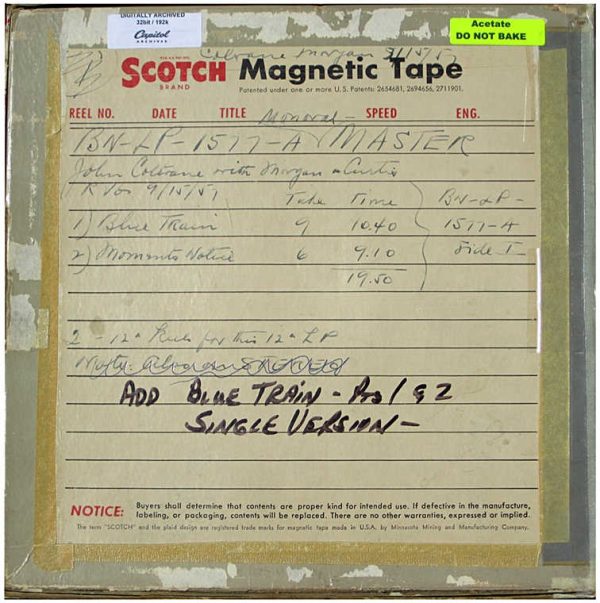 DIGITALLY ARCHIVED
32bit / 192k
Capitol
ARCHIVES
Acetate
DO NOT BAKE
Coltrane Morgan 9/15/57
SCOTCH BRAND Magnetic Tape
Patented under one or more U.S. Patents: 2654681, 2694656, 2711901.
REEL NO. DATE TITLE Monoral - SPEED ENG.
BN-LP-1577-A MASTER
John Coltrane with Morgan & Curtis
9/15/57 Take Time BN-LP-
1) Blue Train 9 10.40 1577-A
2) Moments Notice 6 9.10 Side I
19.50
2 - 12" Reels for this 12" LP
ADD BLUE TRAIN - /92
SINGLE VERSION -
NOTICE: Buyers shall determine that contents are proper kind for intended use. If defective in the manufacture,
labeling, or packaging, contents will be replaced. There are no other warranties, expressed or implied.
The term "SCOTCH" and the plaid design are registered trade marks for magnetic tape made in U.S.A. by Minnesota Mining and Manufacturing Company.